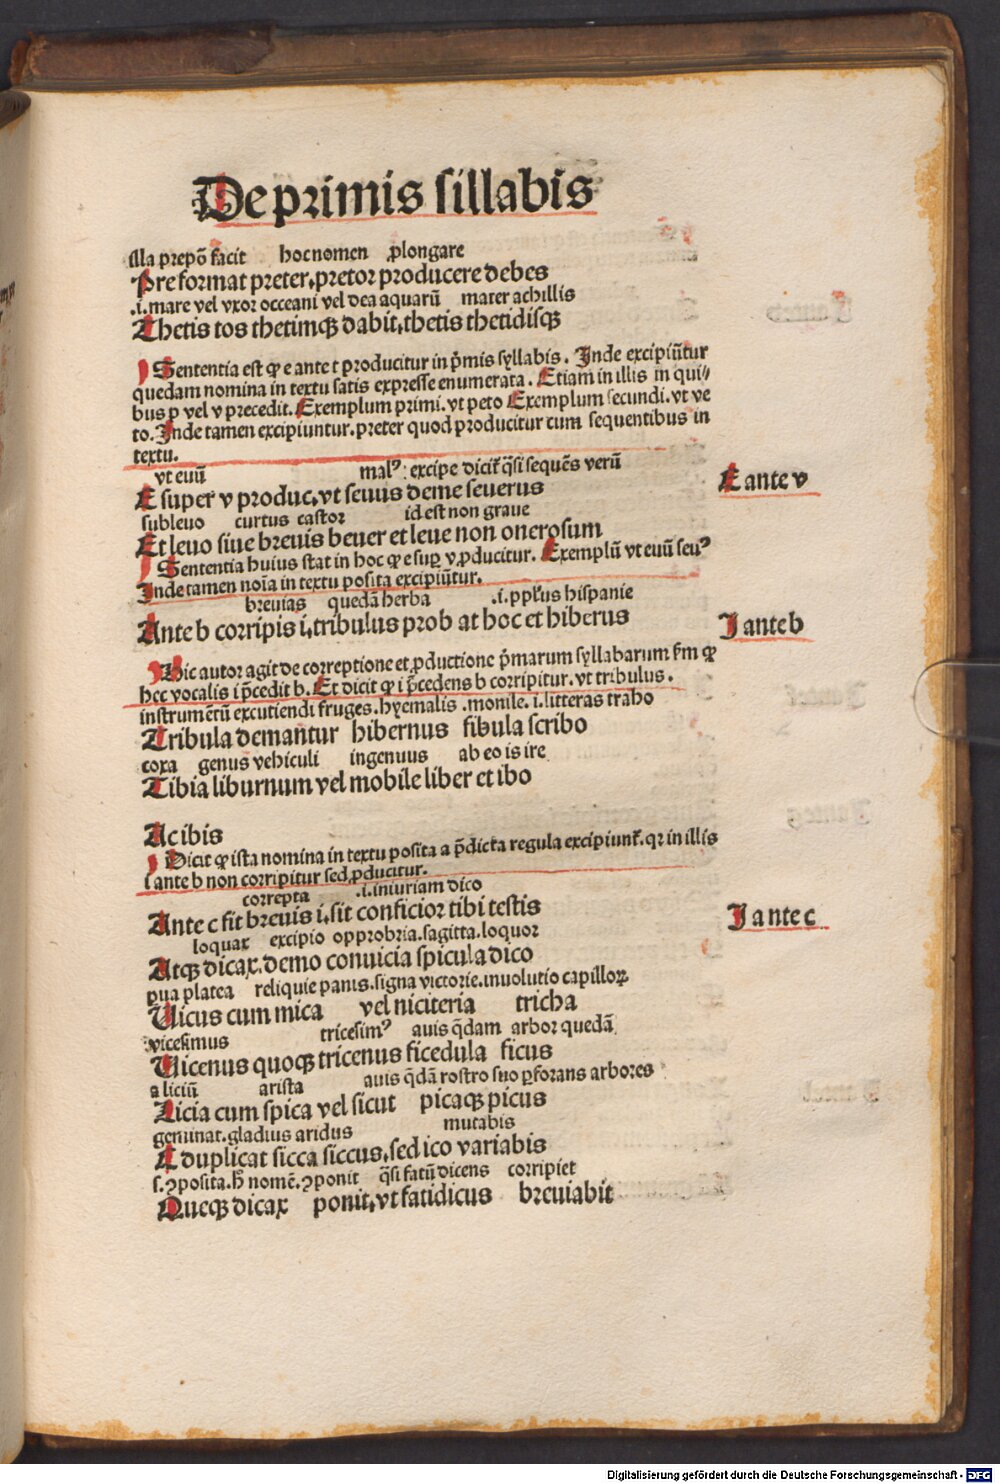 De primis sillabis
illa prepoō facit hoc nomen ꝓlongare
Pre format preter, pretor producere debes
.i. mare vel vxor occeani vel dea aquarū mater achillis
Thetis tos thetimqꝫ dabit, thetis thetidisqꝫ
Sententia est ꝙ e ante t producitur in p̄mis syllabis. Inde excipiūtur
quedam nomina in textu satis expresse enumerata. Etiam in illis in qui⸗
bus p vel v precedit. Exemplum primi. vt peto Exemplum secundi. vt ve
to. Inde tamen excipiuntur. preter quod producitur cum sequentibus in
textu.
vt euū malꝰ: excipe dicit̄ q̄si sequēs verū
E super v produc, vt seuus deme seuerus
E ante v
subleuo curtus castor id est non graue
Et leuo siue breuis beuer et leue non onerosum
Sententia huius stat in hoc ꝙ e suꝑ v ꝓducitur. Exemplū vt euū seuꝰ
Inde tamen noīa in textu posita excipiūtur.
breuias quedā herba .i. pplus hispanie
Ante b corripis i, tribulus prob at hoc et hiberus
I ante b
Hic autor agit de correptione et ꝓductione p̄marum syllabarum f̄m ꝙ
hec vocalis i p̄cedit b. Et dicit ꝙ i p̄cedens b corripitur. vt tribulus.
instrumētū excutiendi fruges. hyemalis .monile. i. litteras traho
Tribula demantur hibernus fibula scribo
coxa genus vehiculi ingenuus ab eo is ire
Tibia liburnum vel mobile liber et ibo
Ac ibis
Dicit ꝙ ista nomina in textu posita a p̄dicta regula excipiunt̄. qꝛ in illis
i ante b non corripitur sed ꝓducitur.
correpta .i. iniuriam dico
Ante c fit breuis i, sit conficior tibi testis
I ante c
loquax excipio opprobria. sagitta. loquor
Atqꝫ dicax, demo conuicia spicula dico
pua platea reliquie panis. signa victorie. inuolutio capilloꝝ
Uicus cum mica vel niciteria tricha
vicesimus tricesimꝰ auis q̄dam arbor quedā
Uicenus quoqꝫ tricenus ficedula ficus
a liciū arista auis q̄dā rostro suo ꝑforans arbores
Licia cum spica vel sicut picaqꝫ picus
geminat. gladius aridus mutabis
C duplicat sicca siccus, sed ico variabis
s. ꝯposita. h̄ nomē. ꝯponit q̄si fatū dicens corripiet
Queqꝫ dicax ponit, vt fatidicus breuiabit
Digitalisierung gefördert durch die Deutsche Forschungsgemeinschaft - DFG